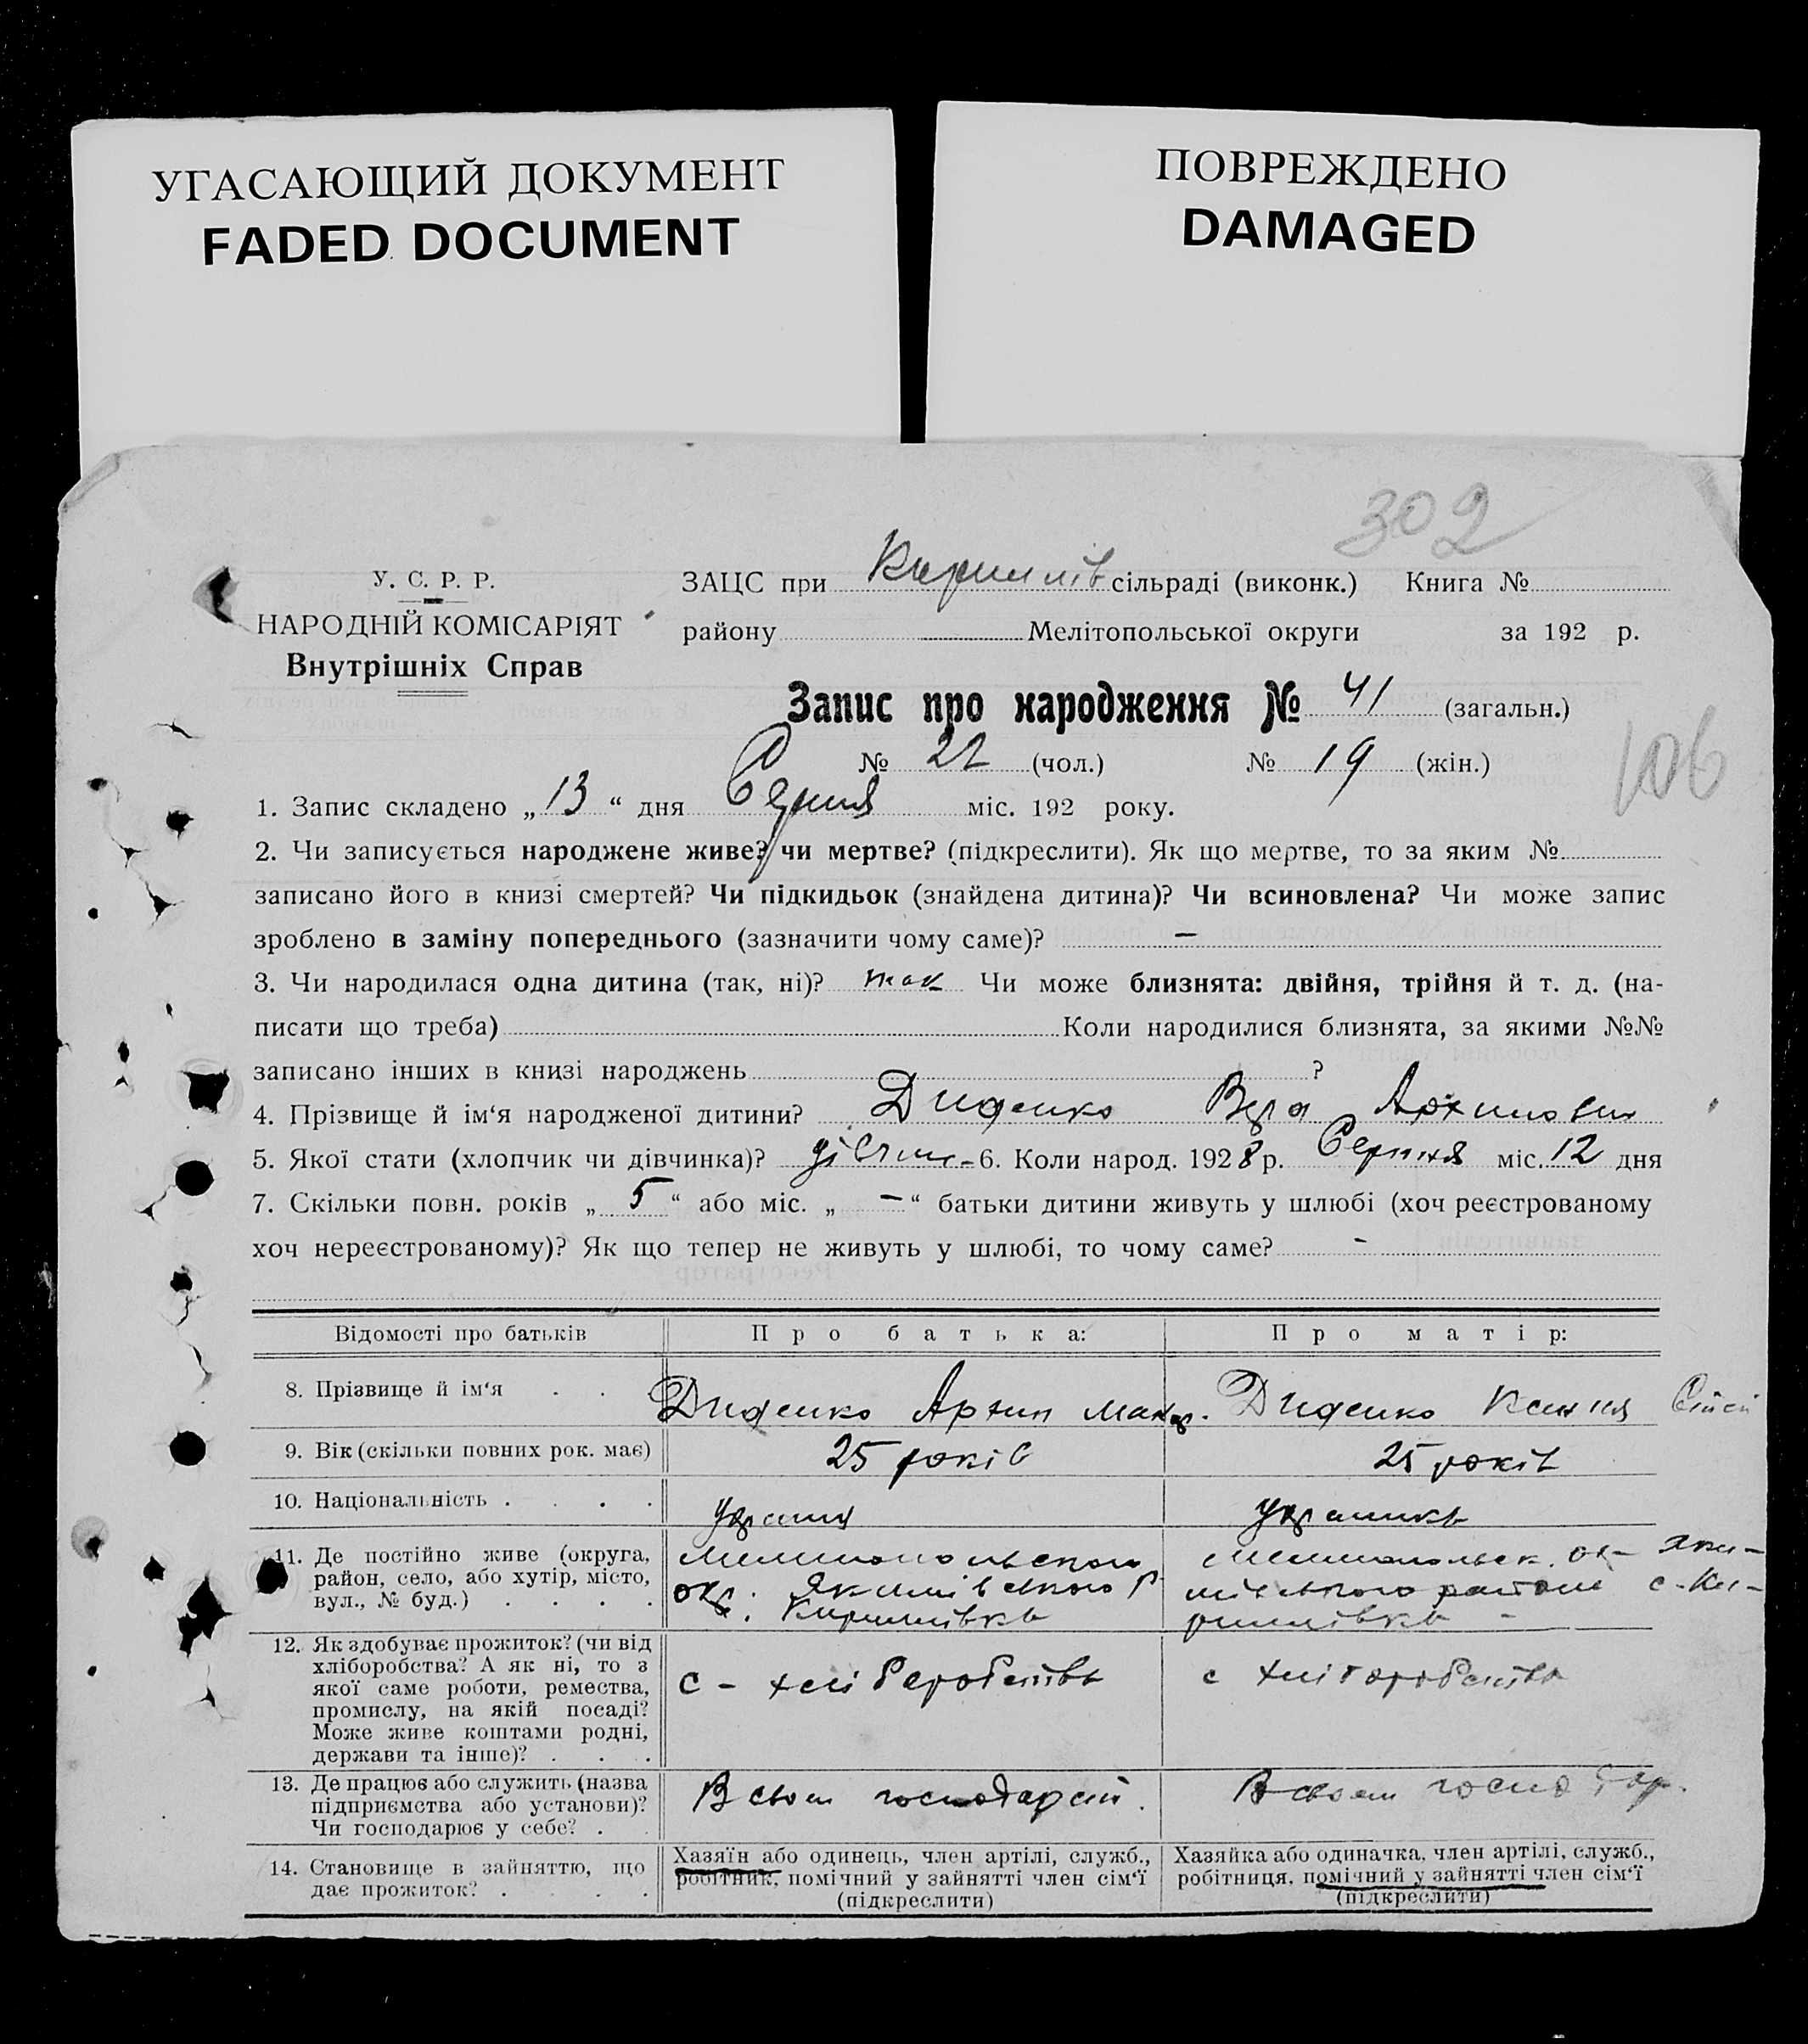 УГАСАЮЩИЙ ДОКУМЕНТ
FADED DOCUMENT
ПОВРЕЖДЕНО
DAMAGED
302
У. С. Р. Р.
НАРОДНІЙ КОМІСАРІЯТ
Внутрішніх Справ
ЗАЦС при Кирилів сільраді (виконк.) Книга №
району Мелітопольської округи за 192 р.
Запис про народження № 41 (загальн.)
№ 22 (чол.) № 19 (жін.)
106
1. Запис складено „13“ дня Серпня міс. 192 року.
2. Чи записується народжене живе? чи мертве? (підкреслити). Як що мертве, то за яким №
записано його в книзі смертей? Чи підкидьок (знайдена дитина)? Чи всиновлена? Чи може запис
зроблено в заміну попереднього (зазначити чому саме)? —
3. Чи народилася одна дитина (так, ні)? так Чи може близнята: двійня, трійня й т. д. (на-
писати що треба) Коли народилися близнята, за якими №№
записано інших в книзі народжень ?
4. Прізвище й ім‘я народженої дитини? Диденко Вера Архиповн
5. Якої стати (хлопчик чи дівчинка)? 6. Коли народ. 1928 р. Серпня міс. 12 дня
7. Скільки повн. років „5“ або міс. „—“ батьки дитини живуть у шлюбі (хоч реєстрованому
хоч нереєстрованому)? Як що тепер не живуть у шлюбі, то чому саме? -
Відомості про батьків
Про батька:
Про матір:
8. Прізвище й ім‘я . . .
Диденко Архип
Диденко Ксения
9. Вік (скільки повних рок. має)
25 років
25 років
10. Національність . . . .
україня
українка
11. Де постійно живе (округа,
район, село, або хутір, місто,
вул., № буд.) . . . .
Мелитопольского
окр. Якимівського р
Кирилівка
Мелитопольск. ок- Яки-
мівського району с-Ки-
рилівка -
12. Як здобуває прожиток? (чи від
хліборобства? А як ні, то з
якої саме роботи, ремества,
промислу, на якій посаді?
Може живе коштами родні,
держави та інше)? . . .
с - хліборобства
с хліборобства
13. Де працює або служить (назва
підприємства або установи)?
Чи господарює у себе? . .
В своем
В своем господар.
14. Становище в зайняттю, що
дає прожиток? . . . .
Хазяїн або одинець, член артілі, служб.,
робітник, помічний у зайнятті член сім‘ї
(підкреслити)
Хазяйка або одиначка, член артілі, служб.,
робітниця, помічний у зайнятті член сім‘ї
(підкреслити)